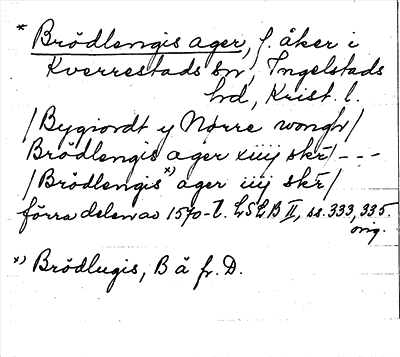 * Brödlengis ager, f. åker i
Kverrestads sn, Ingelstads
hd, Krist. l.
/Bygiordt y Nørre wongh/
Brödlengis ager xiiij skr̄/---
/Brödlengis *) ager iiij skr̄/
förra delen av 1570-t. LSLB II, ss. 333, 335.
orig.
*) Brödlugis, B å fr. D.